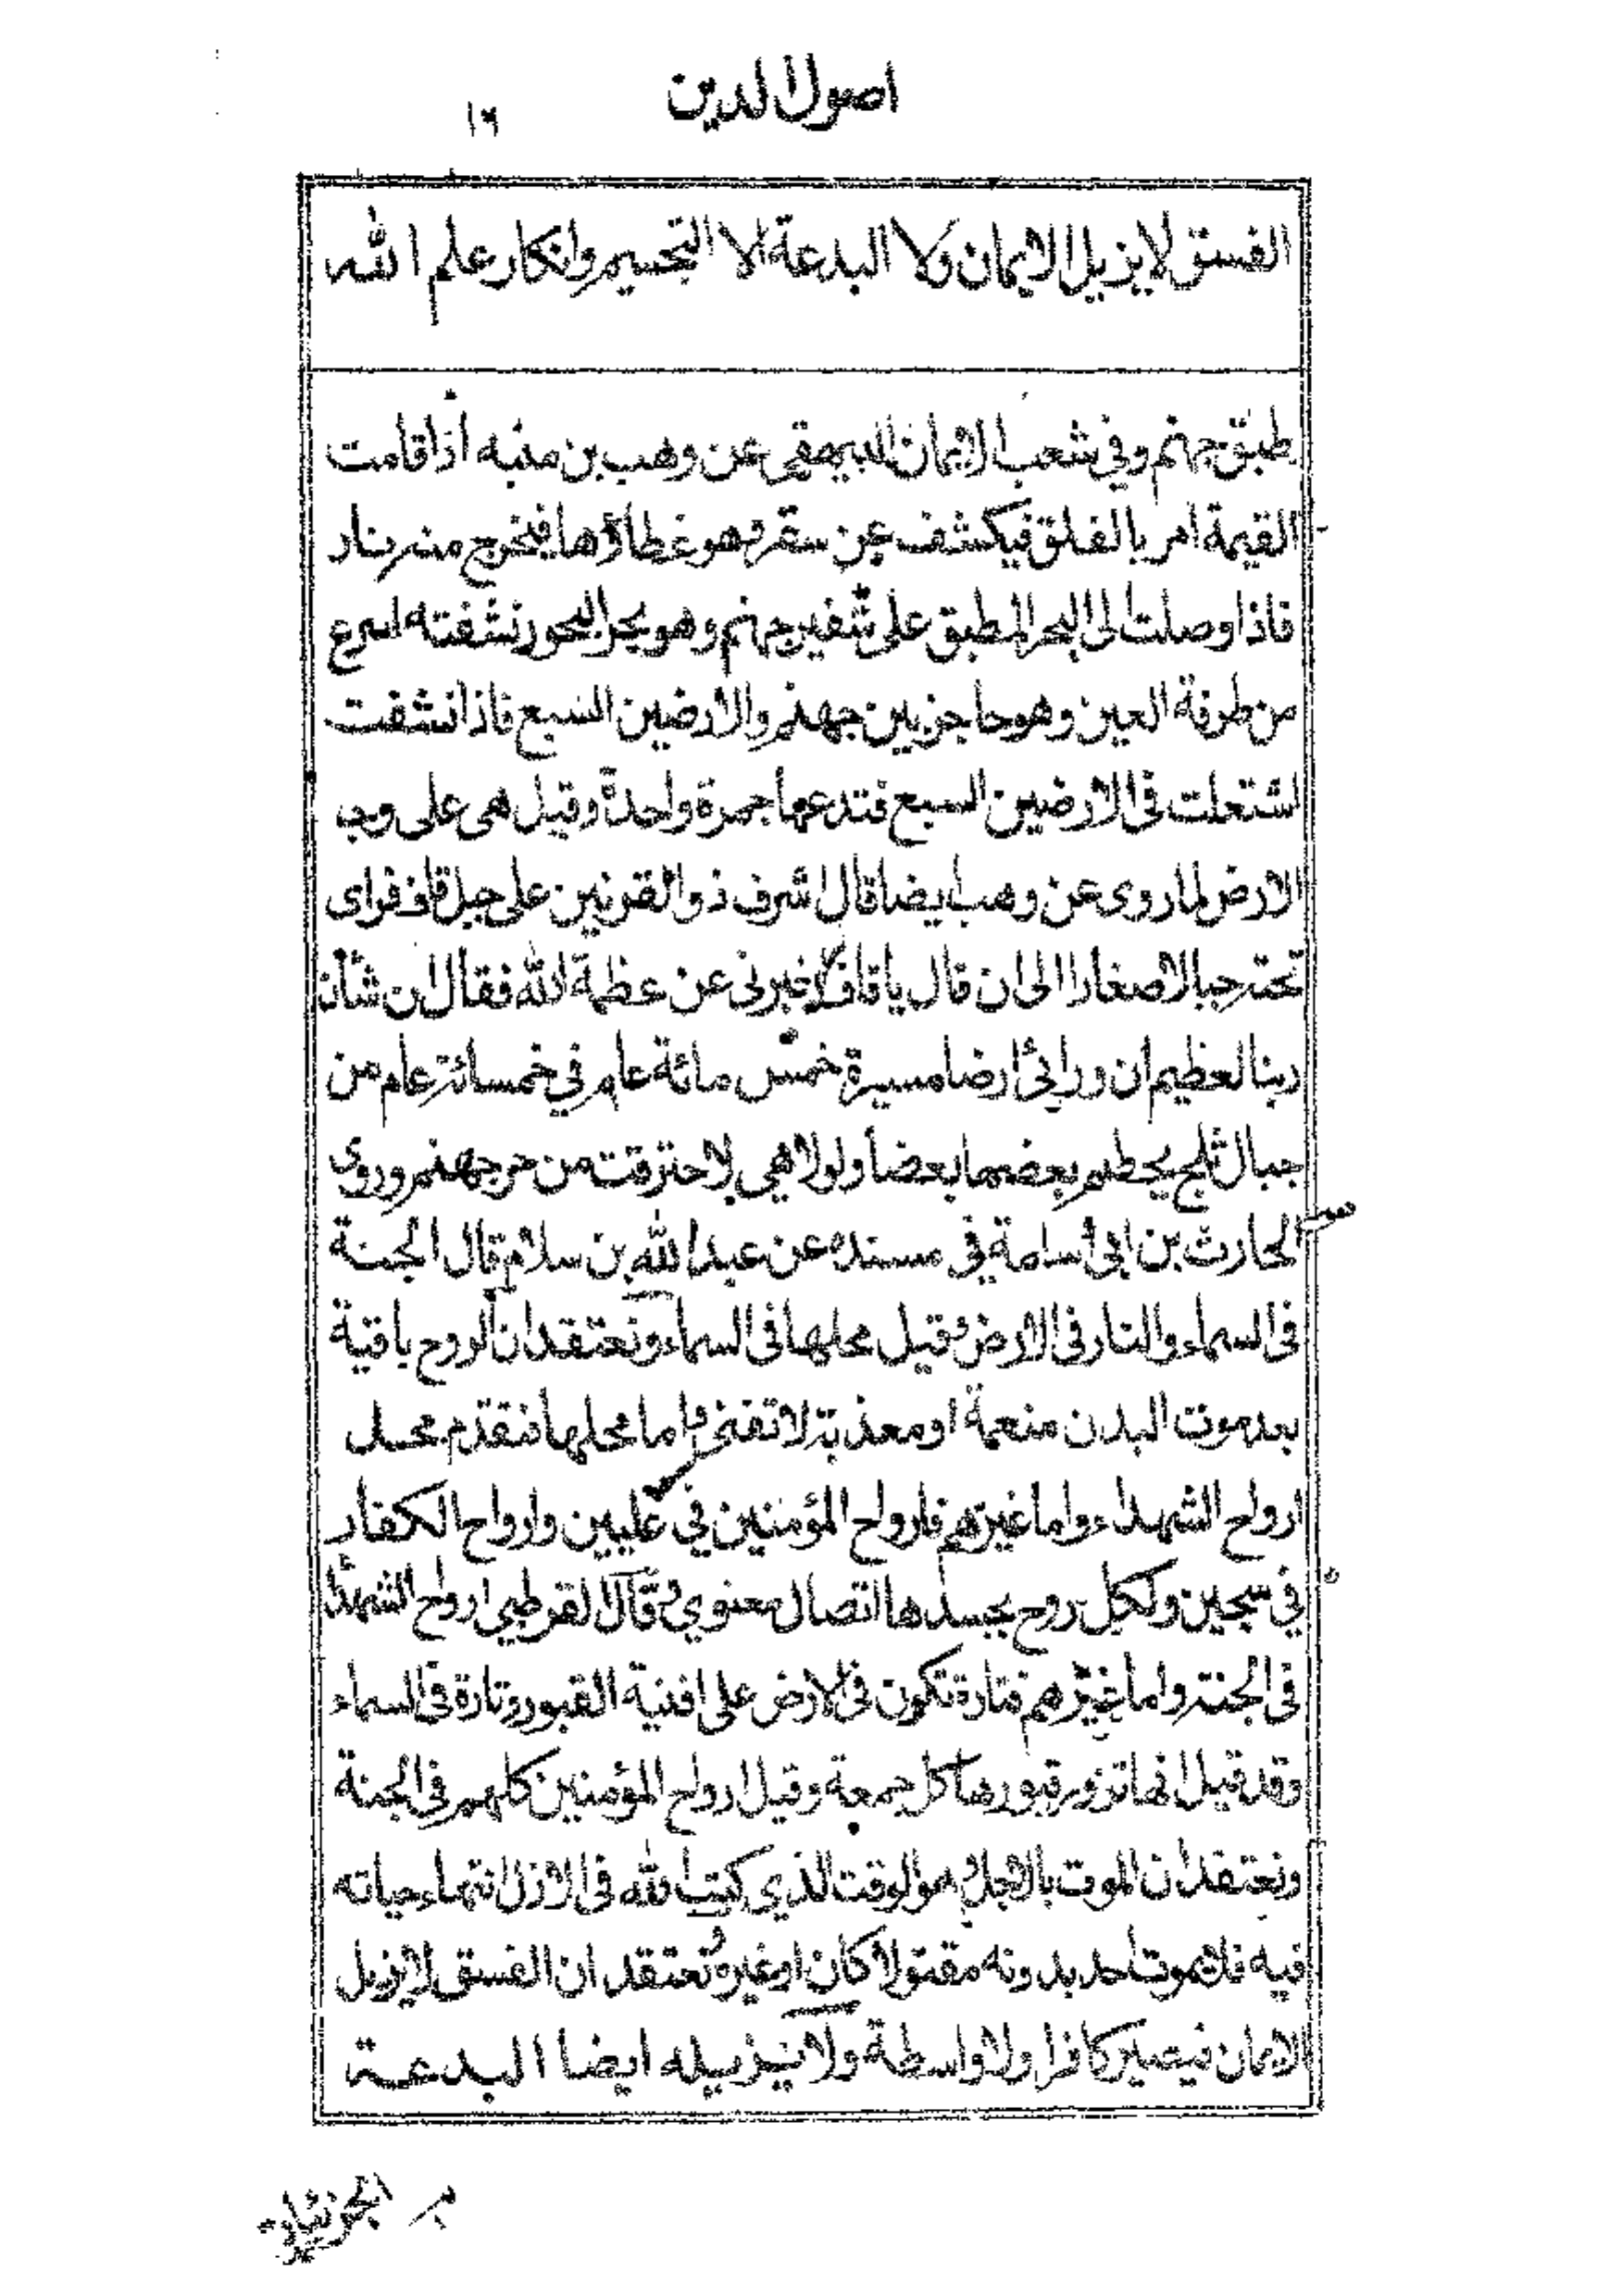 اصول الدين
١٦
الفسق لا يزيل الايمان ولا البدعة الا التجسيم وانكار علم الله
طبق جهنم وفي شعب الايمان للبيهقى عن وهب بن منبه اذا قامت
القيمة امر بالفلق فيكشف عن سقر فهو غطاؤها فيخرج منه نار
فاذا وصلت الى البحر المطبق على شفير جهنم وهو بحر البحور نشفته اسرع
من طرفة العين وهو حاجز بين جهنم والارضين السبع فاذا نشفت
اشتعلت فى الارضين السبع فتدعها جمرة واحدة وقيل هى على وجه
الارض لما روى عن وهب ايضا قال اشرف ذو القرنين على جبل قاف فراى
تحته جبالا صغارا الى ان قال يا قاف اخبرنى عن عظمة الله فقال ان شأن
ربنا لعظيم ان ورائى ارضا مسيرة خمس مائة عام في خمسائة عام من
جبال ثلج يحطم بعضها بعضا ولولا هي لاحترقت من حر جهنم وروى
الحارث بن ابى اسامة في مسنده عن عبد الله بن سلام قال الجنة
فى السماء والنار فى الارض وقيل محلها فى السماء ونعتقد ان الروح باقية
بعد موت البدن منعمة او معذبة لا تفنى واما محلها فتقدم محل
ارواح الشهداء واما غيرهم فارواح المؤمنين في عليين وارواح الكفار
في سجين ولكل روح بجسدها اتصال معنوي وقال القرطبي ارواح الشهدا
فى الجنة واما غيرهم فتارة تكون فى الارض على افنية القبور وتارة فى السماء
وقد قيل انها تزور قبورها كل جمعة وقيل ارواح المؤمنين كلهم فى الجنة
ونعتقد ان الموت بالاجل وهو الوقت الذي كتب الله فى الازل انتهاء حياته
فيه فلا يموت احد بدونه مقتولا كان او غيره ونعتقد ان الفسق لا يزيل
الايمان فيصير كافرا ولا واسطة ولا يزيله ايضا البدعة
الجزئيات